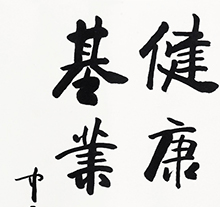 健康
基業